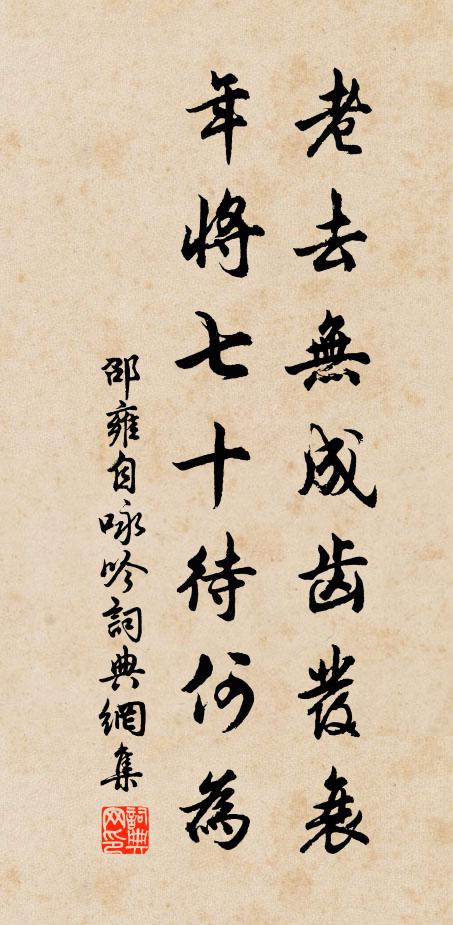 老去無成齒發衰
年將七十待何為
邵雍自咏吟詞典網集
詞典网印